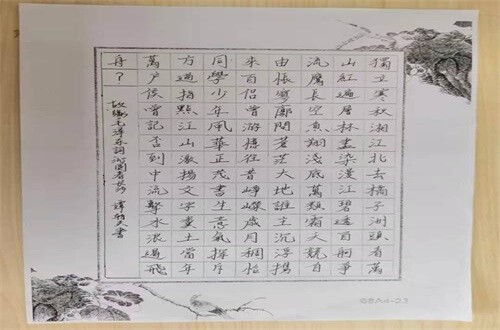 獨立寒秋湘江北去橘子洲頭看萬
山紅遍層林盡染漫江碧透百舸爭
流鷹長空魚翔淺底萬類霜天競自
由悵寥廓問蒼茫大地誰主沉浮攜
來百侶曾游憶往昔崢嶸歲月稠恰
同學少年風華正茂書生意氣揮斥
方遒指點江山激揚文字糞土當年
萬户侯曾記否到中流擊水浪遏飛
舟？
毛澤東詞沁園春長沙 書
08A4-23